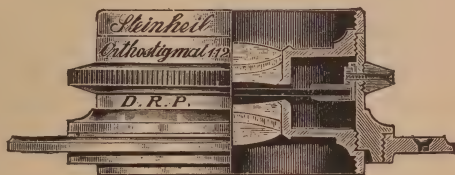 Steinheil
Orthostigmat 1:12
D. R. P.